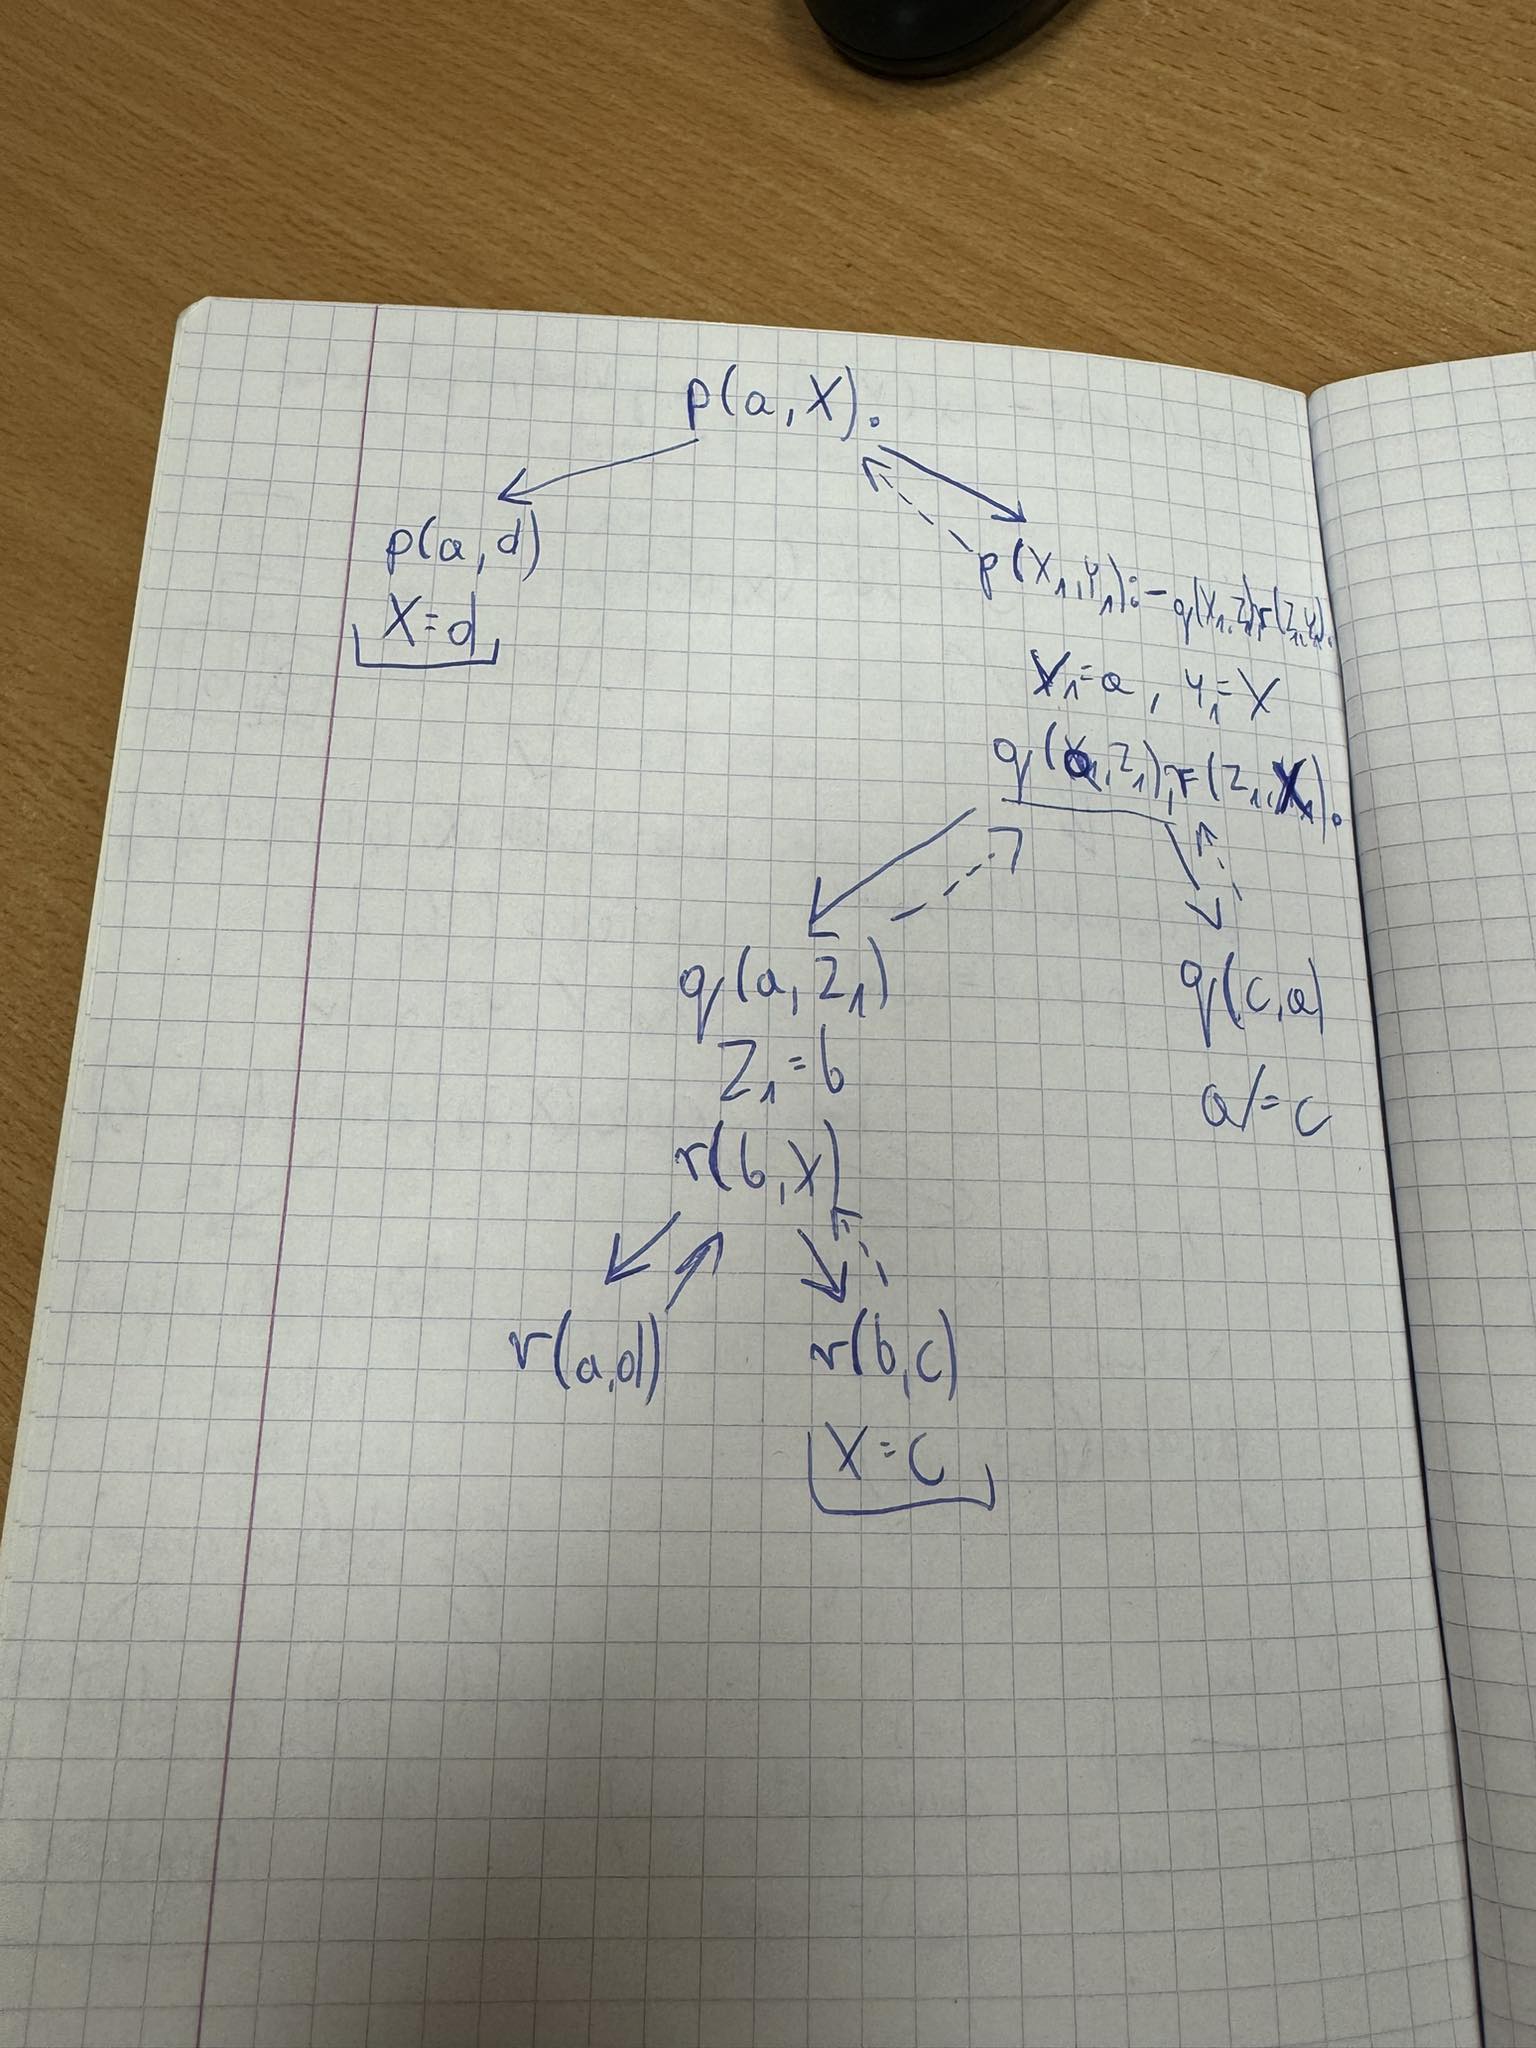 p(a, X).
p(a, d)
X=d
p(X₁, Y₁):- q(X₁, Z₁), r(Z₁, Y₁).
X₁=a, Y₁=X
q(a, Z₁), r(Z₁, X).
q(a, Z₁)
q(c, a)
Z₁=b
a/=c
r(b, X)
r(a, d)
r(b, c)
X=c